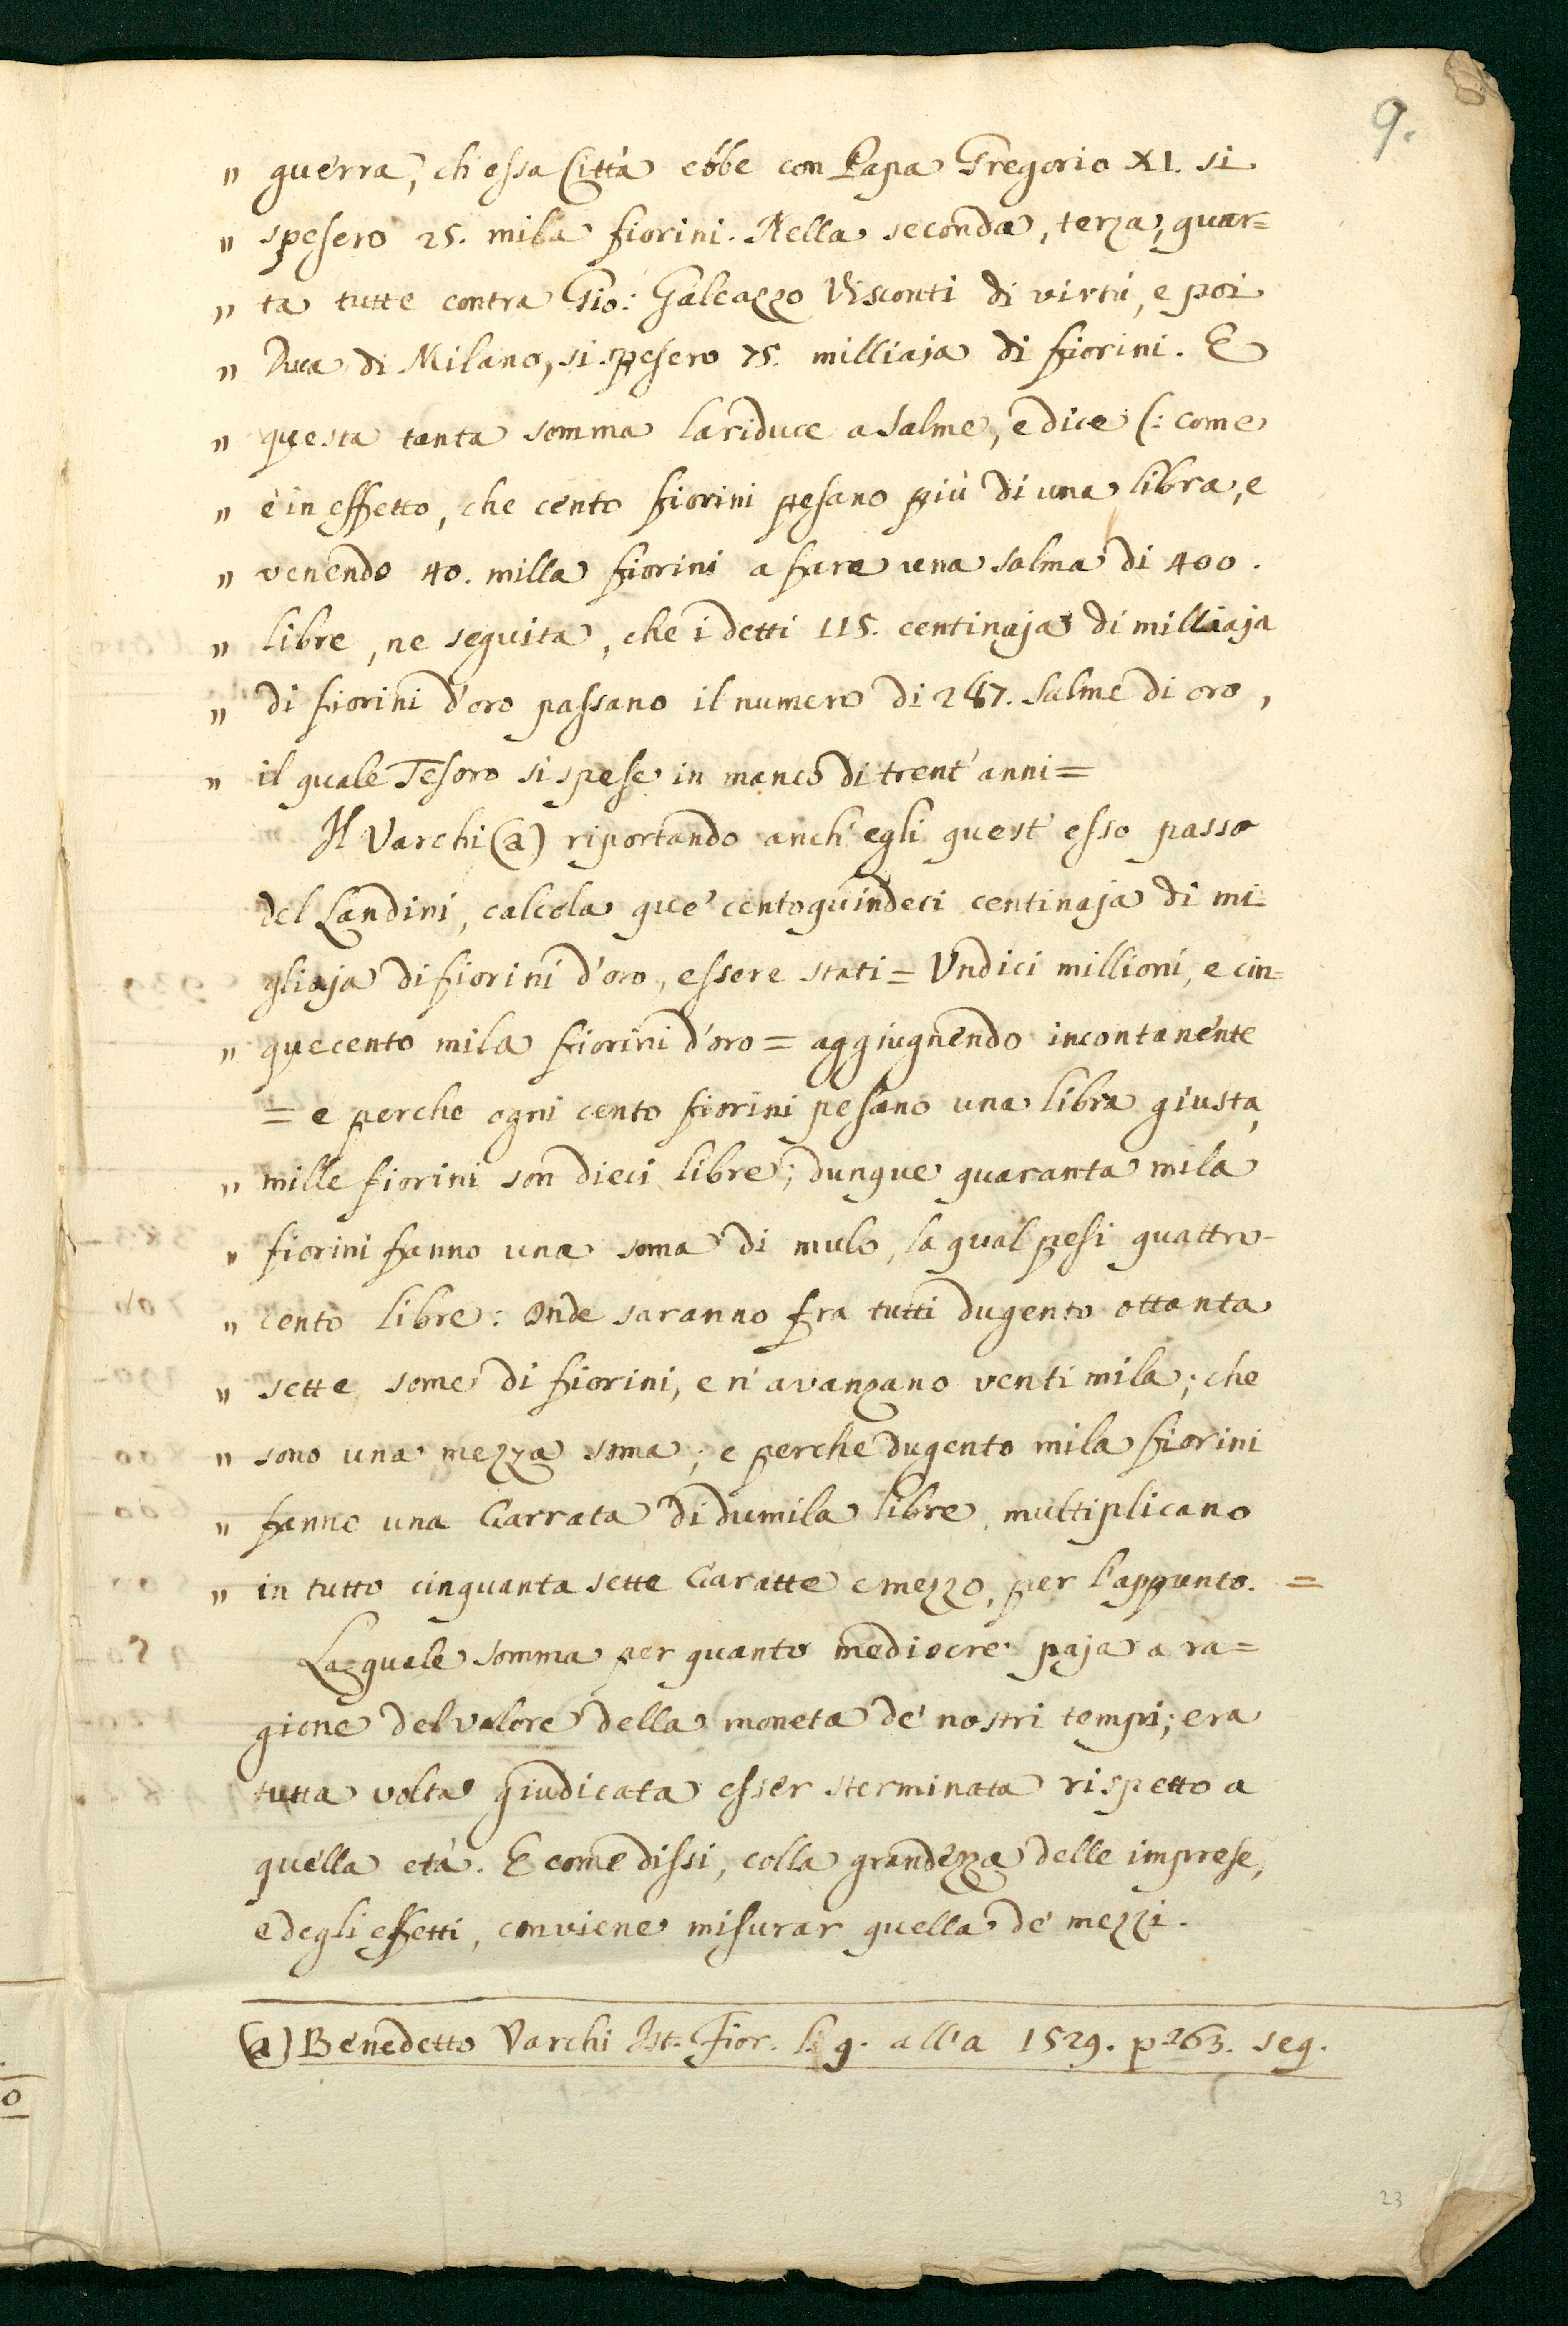 9.
" guerra, ch'essa Città ebbe con Papa Gregorio XI. si
" spesero 25. mila fiorini. Nella seconda, terza, quar=
" ta tutte contra Gio: Galeazzo Visconti di virtù, e poi
" Duca di Milano, si spesero 75. milliaja di fiorini. E
" questa tanta somma la riduce a salme, e dice (: come
" è in effetto, che cento fiorini pesano più di una libra, e
" venendo 40. milla fiorini a fare una salma di 400.
" libre, ne seguita, che i detti 115. centinaja di milliaja
" di fiorini d'oro passano il numero di 287. Salme di oro,
" il quale Tesoro si spese in manco di trent'anni =
Il Varchi (a) riportando anch'egli quest'esso passo
del Landini, calcola que' centoquindeci centinaja di mi=
gliaja di fiorini d'oro, essere stati = Undici millioni, e cin=
" quecento mila fiorini d'oro = aggiugnendo incontanente
= e perche ogni cento fiorini pesano una libra giusta,
" mille fiorini son dieci libre; dunque quaranta mila
" fiorini fanno una soma di mulo, la qual pesi quattro-
" cento libre: Onde saranno fra tutti dugento ottanta
" sette some di fiorini, e n'avanzano venti mila; che
" sono una mezza soma; e perche dugento mila fiorini
" fanno una Carrata di dumila libre, multiplicano
" in tutto cinquanta sette Caratte e mezzo, per l'appunto. =
La quale somma per quanto mediocre paja a ra=
gione del valore della moneta de' nostri tempi; era
tutta volta giudicata esser sterminata rispetto a
quella età. E come dissi, colla grandezza delle imprese,
e degli effetti, conviene misurar quella de' mezzi.
(a) Benedetto Varchi Ist. Fior. l. 9. all'a 1529. p. 263. seg.
23